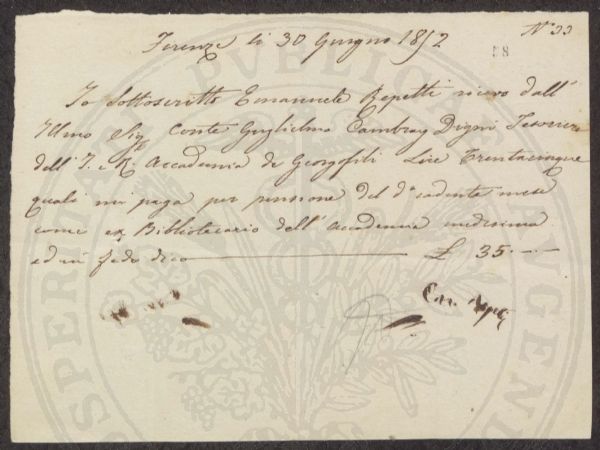 Firenze lì 30 Giugno 1852
N° 33
58
Io Sottoscritto Emanuele Repetti ricevo dall'
Illmo Sigr Conte Guglielmo Cambray Digni Tesoriere
dell' I. e R. Accademia de Georgofili Lire Trentacinque
quali mi paga per pensione del do cadente mese
come ex Bibliotecario dell' Accademia medesima
ed in fede dico £ 35.
PROSPERITATI PUBLICAE AUGENDAE